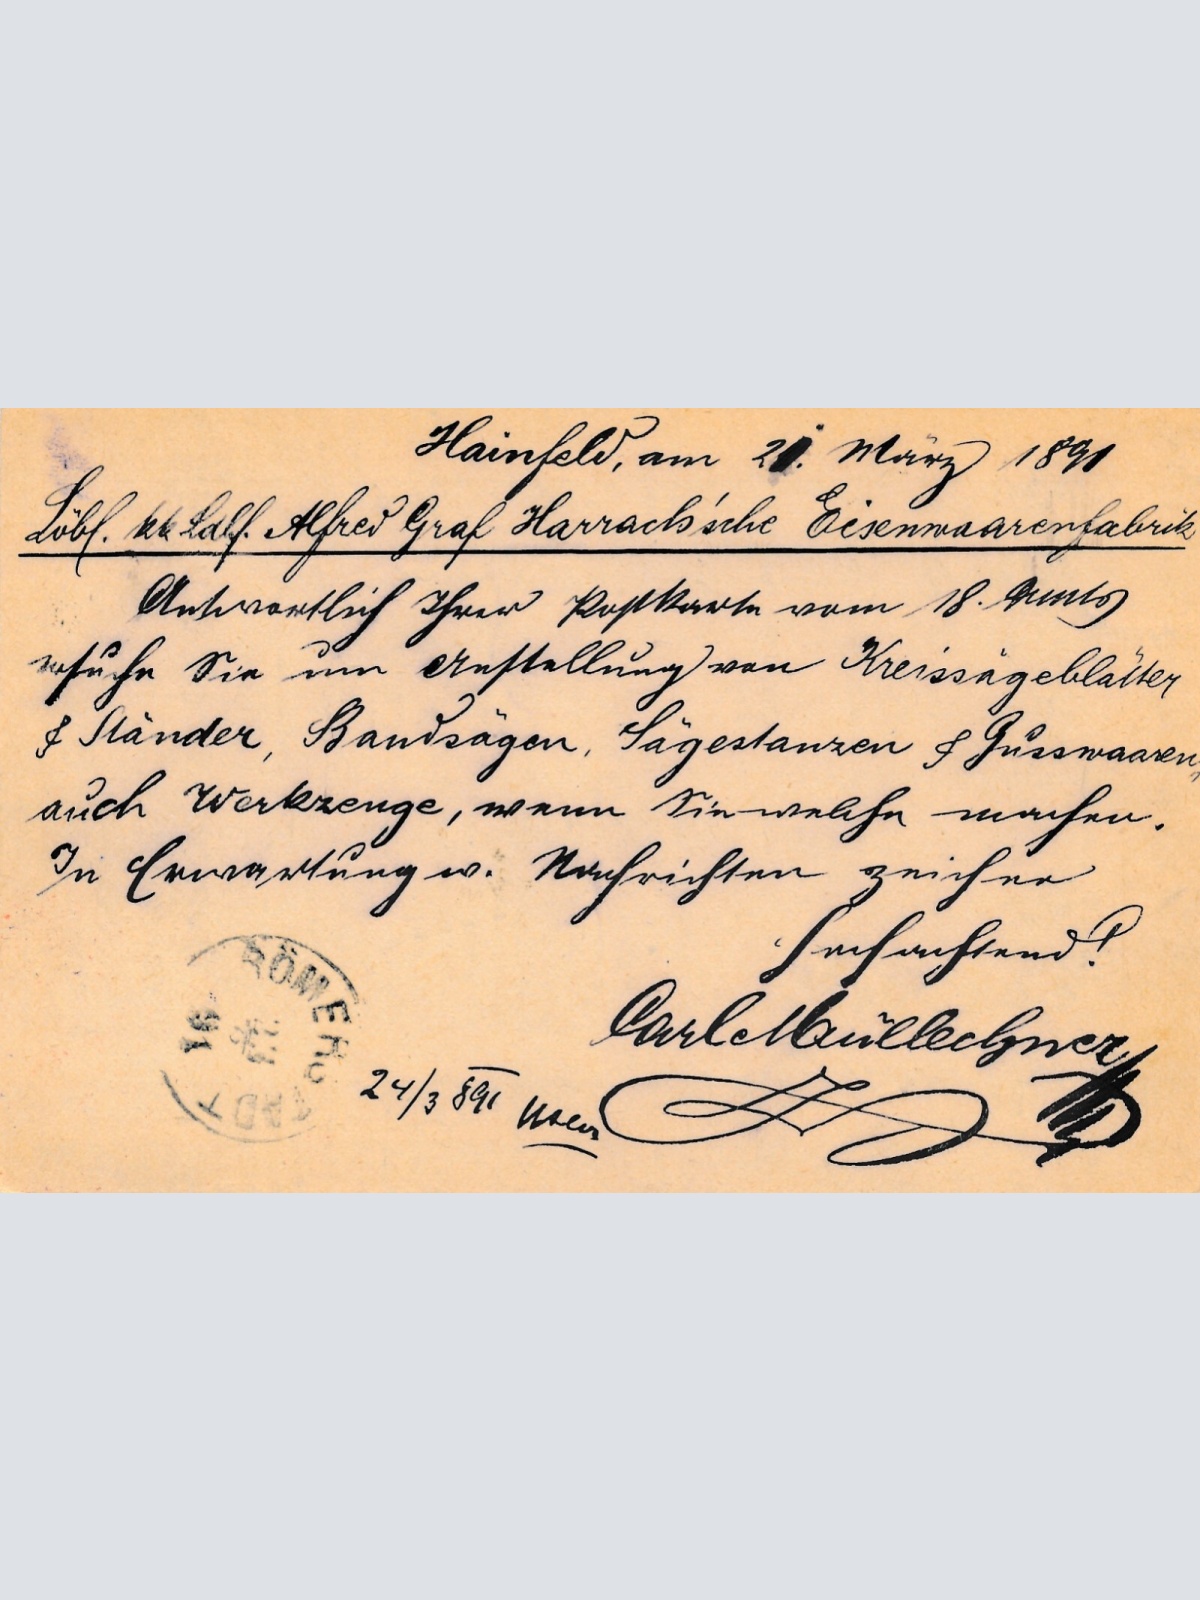 Hainfeld, am 21. März 1891
Löbl. kk Alfred Graf Harrach'sche Eisenwaarenfabrik
Antwortlich Ihrer Postkarte vom 18.
ersuche Sie um Anstellung von Kreissägeblätter
& Ständer, Bandsägen, Sägestanzen & Gusswaaren,
auch Werkzeuge, wenn Sie welche machen.
In Erwartung w. Nachrichten zeichne
Hochachtend!
Carl Müllechner
24/3 891
RÖMERSTADT